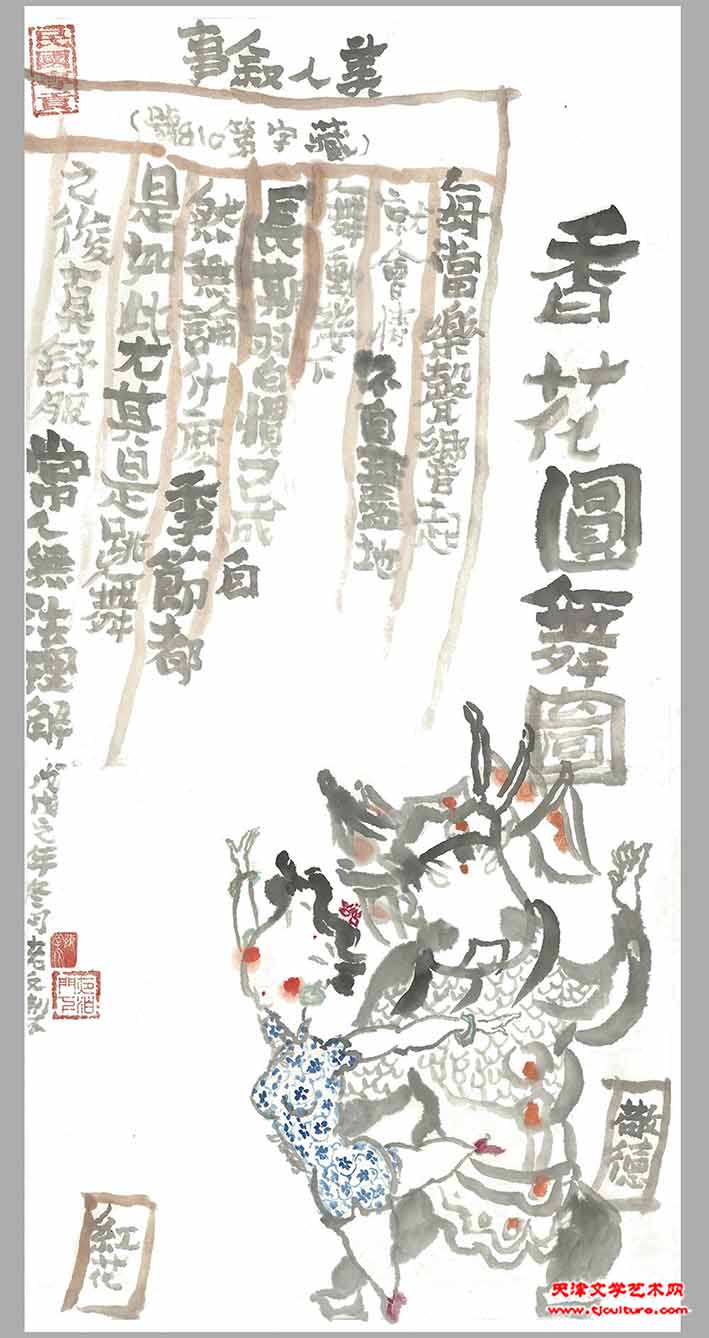 香花圓舞圖
美人叙事
(藏字第018號)
每當樂聲響起
就會情不自禁地
舞動幾下
長期習慣已成自
然無論什麼季節都
是如此尤其是跳舞
之後真舒服常人無法理解
戊戌之年冬月
敬德
紅花
天津文学艺术网
www.tjculture.com